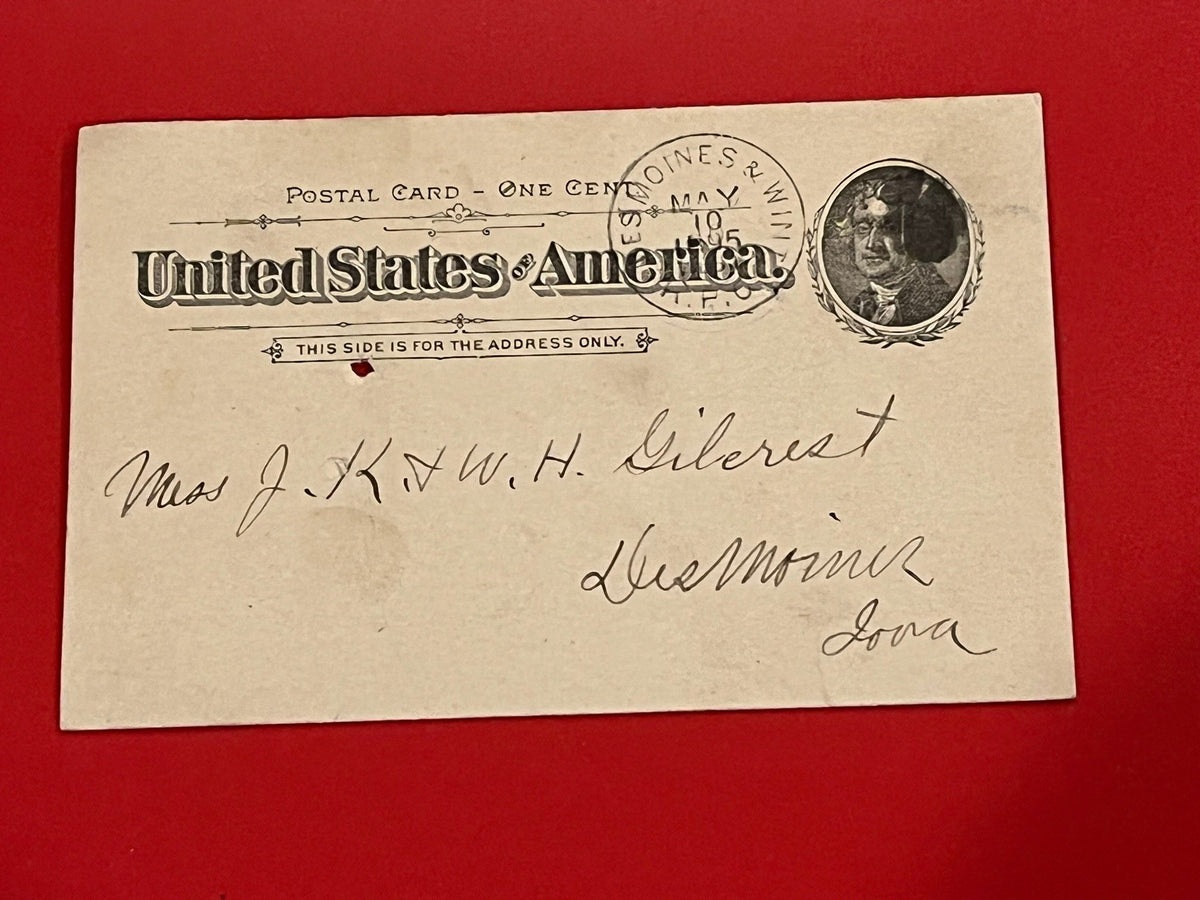 POSTAL CARD – ONE CENT
United States OF America.
THIS SIDE IS FOR THE ADDRESS ONLY.
DES MOINES & WIN
MAY
10
1895
R.P.O.
Mess J. K. & W. H. Gilcrest
Des Moines
Iowa